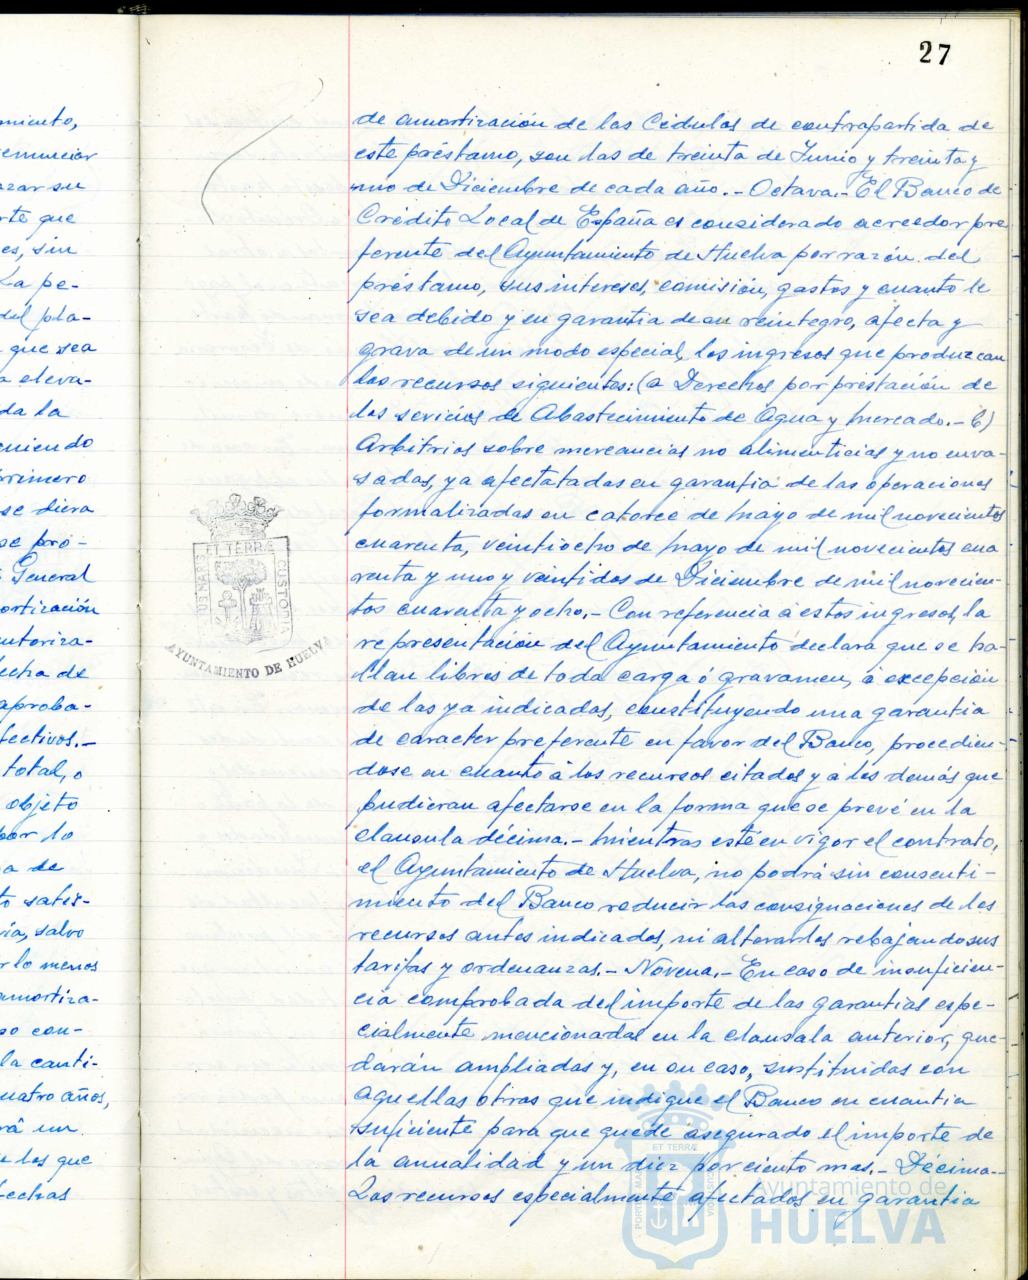 27
miento,
enunciar
azar su
rte que
es, sin
La pe-
del pla-
que sea
a eleva-
da la
eniendo
primero
se diera
se pro-
General
ortización
utoriza-
echa de
aproba-
fectivos.-
total, o
objeto
por lo
a de
to satis-
ria, salvo
r lo menos
amortiza-
so con-
la canti-
uatro años,
rá un
e los que
fechas
de amortización de las Cédulas de contrapartida de
este préstamo, son las de treinta de Junio y treinta y
uno de Diciembre de cada año.- Octava.- El Banco de
Crédito Local de España es considerado acreedor pre
ferente del Ayuntamiento de Huelva por razón del
préstamo, sus intereses, comisión, gastos y cuanto le
sea debido y en garantia de su reintegro, afecta y
grava de un modo especial, los ingresos que produzcan
los recursos siguientes: (a Derechos por prestación de
los sevicios de Abastecimiento de Agua y Mercado.- b)
Arbitrios sobre mercancias no alimenticias y no enva-
sadas, ya afectatadas en garantia de las operaciones
formalizadas en catorce de Mayo de mil novecientos
cuarenta, veintiocho de Mayo de mil novecientos cua
renta y uno y veintidos de Diciembre de mil novecien-
tos cuarenta y ocho.- Con referencia a estos ingresos, la
representación del Ayuntamiento declara que se ha-
llan libres de toda carga o gravamen, a excepción
de las ya indicadas, constituyendo una garantia
de caracter preferente en favor del Banco, procedien-
dose en cuanto á los recursos citados y a los demás que
pudieran afectarse en la forma que se prevé en la
clausula décima.- Mientras esté en vigor el contrato,
el Ayuntamiento de Huelva, no podrá sin consenti-
miento del Banco reducir las consignaciones de los
recursos antes indicados, ni alterarlos rebajando sus
tarifas y ordenanzas.- Novena.- En caso de insuficien-
cia comprobada del importe de las garantias espe-
cialmente mencionadas en la clausala anterior, que-
darán ampliadas y, en su caso, sustituidas con
aquellas otras que indique el Banco en cuantia
suficiente para que quede asegurado el importe de
la anualidad y un diez por ciento mas.- Décima.-
Los recursos especialmente afectados en garantia
ET TERRÆ
CUSTODIA
AYUNTAMIENTO DE HUELVA
ET TERRÆ
Ayuntamiento de
HUELVA